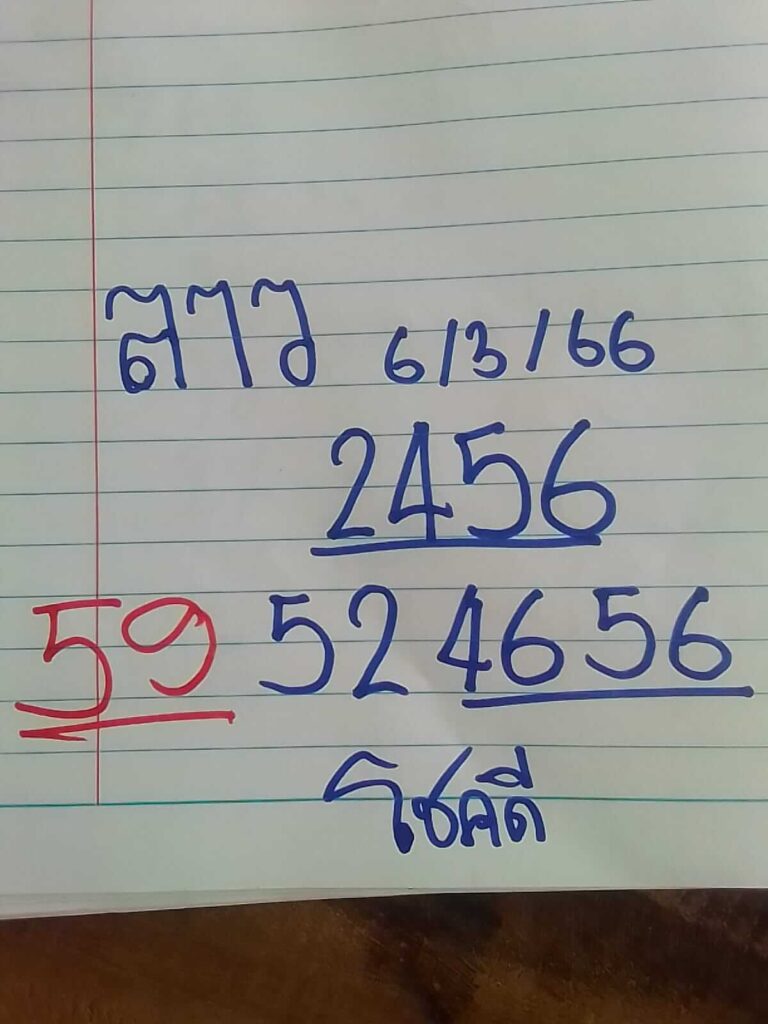 ลาว 6/3/66
2456
59 52 46 56
โชคดี